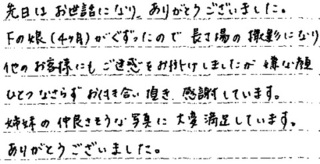 先日はお世話になり、ありがとうございました。
下の娘(4ヶ月)がぐずったので長丁場の撮影になり
他のお客様にもご迷惑をお掛けしましたが嫌な顔
ひとつなさらずお付き合い頂き、感謝しています。
姉妹の仲良さそうな写真に大変満足しています。
ありがとうございました。